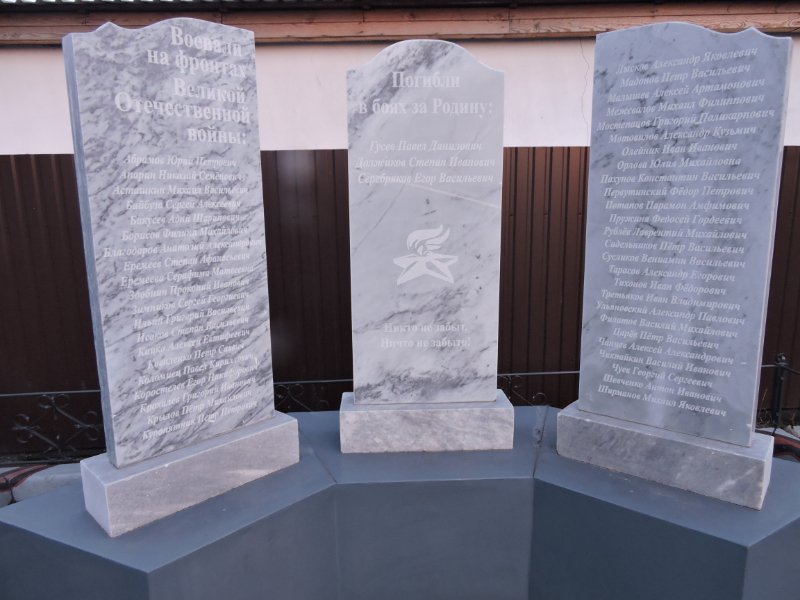 Воевали
на фронтах
Великой
Отечественной
войны:
Абрамов Юрий Петрович
Апарин Николай Семёнович
Асташкин Михаил Васильевич
Байбуз Сергей Алексеевич
Бакусев Адна Шарипович
Борисов Филипп Михайлович
Благодаров Анатолий Александрович
Еремеев Степан Афанасьевич
Еремеева Серафима Матвеевна
Збобнин Прокопий Иванович
Зимняков Сергей Георгиевич
Ильин Григорий Васильевич
Исаков Степан Васильевич
Кипка Алексей Евтифеевич
Коваленко Петр Саввич
Коломиец Павел Кириллович
Коростелев Егор Никифорович
Кравцов Григорий Иванович
Крылов Пётр Михайлович
Куропятник Петр Петрович
Погибли
в боях за Родину:
Гусев Павел Данилович
Должиков Степан Иванович
Серебряков Егор Васильевич
Никто не забыт,
Ничто не забыто!
Лысков Александр Яковлевич
Мадонов Петр Васильевич
Малышев Алексей Артамонович
Межевалов Михаил Филиппович
Мостепацов Григорий Поликарпович
Мотовилов Александр Кузьмич
Олейник Иван Иванович
Орлова Юлия Михайловна
Пахунов Константин Васильевич
Первутинский Фёдор Петрович
Потапов Парамон Амфимович
Пружина Федосей Гордеевич
Рублёв Лаврентий Михайлович
Садельников Пётр Васильевич
Сусликов Вениамин Васильевич
Тарасов Александр Егорович
Тихонов Иван Фёдорович
Третьяков Иван Владимирович
Ульяновский Александр Павлович
Филатов Василий Михайлович
Царёв Пётр Васильевич
Чанцев Алексей Александрович
Чихтайкин Василий Иванович
Чуев Георгий Сергеевич
Шевченко Антон Иванович
Ширманов Михаил Яковлевич